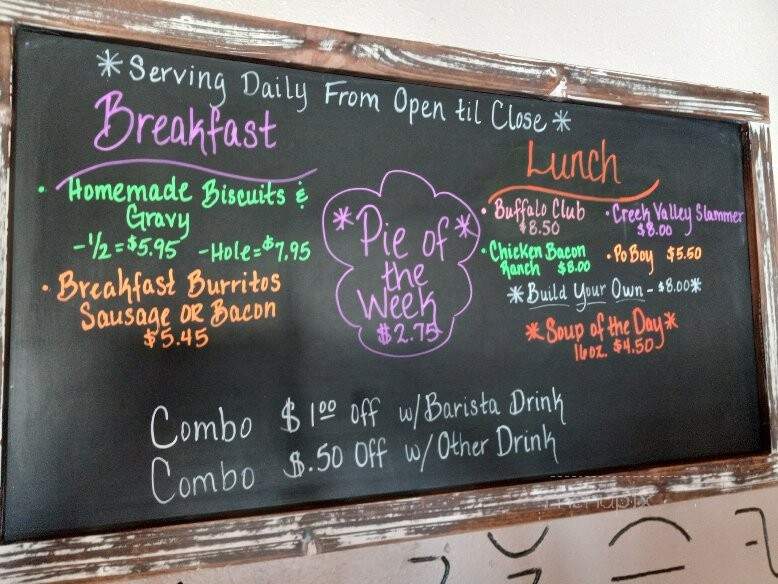 *Serving Daily From Open til Close*
Breakfast
• Homemade Biscuits &
Gravy
-1/2=$5.95 -Hole=$7.95
• Breakfast Burritos
Sausage OR Bacon
$5.45
*Pie of*
the
Week
$2.75
Lunch
• Buffalo Club
$8.50
• Creek Valley Slammer
$8.00
• Chicken Bacon
Ranch $8.00
• Po Boy $5.50
*Build Your Own - $8.00*
*Soup of the Day*
16oz. $4.50
Combo $1.00 off w/Barista Drink
Combo $.50 Off w/Other Drink